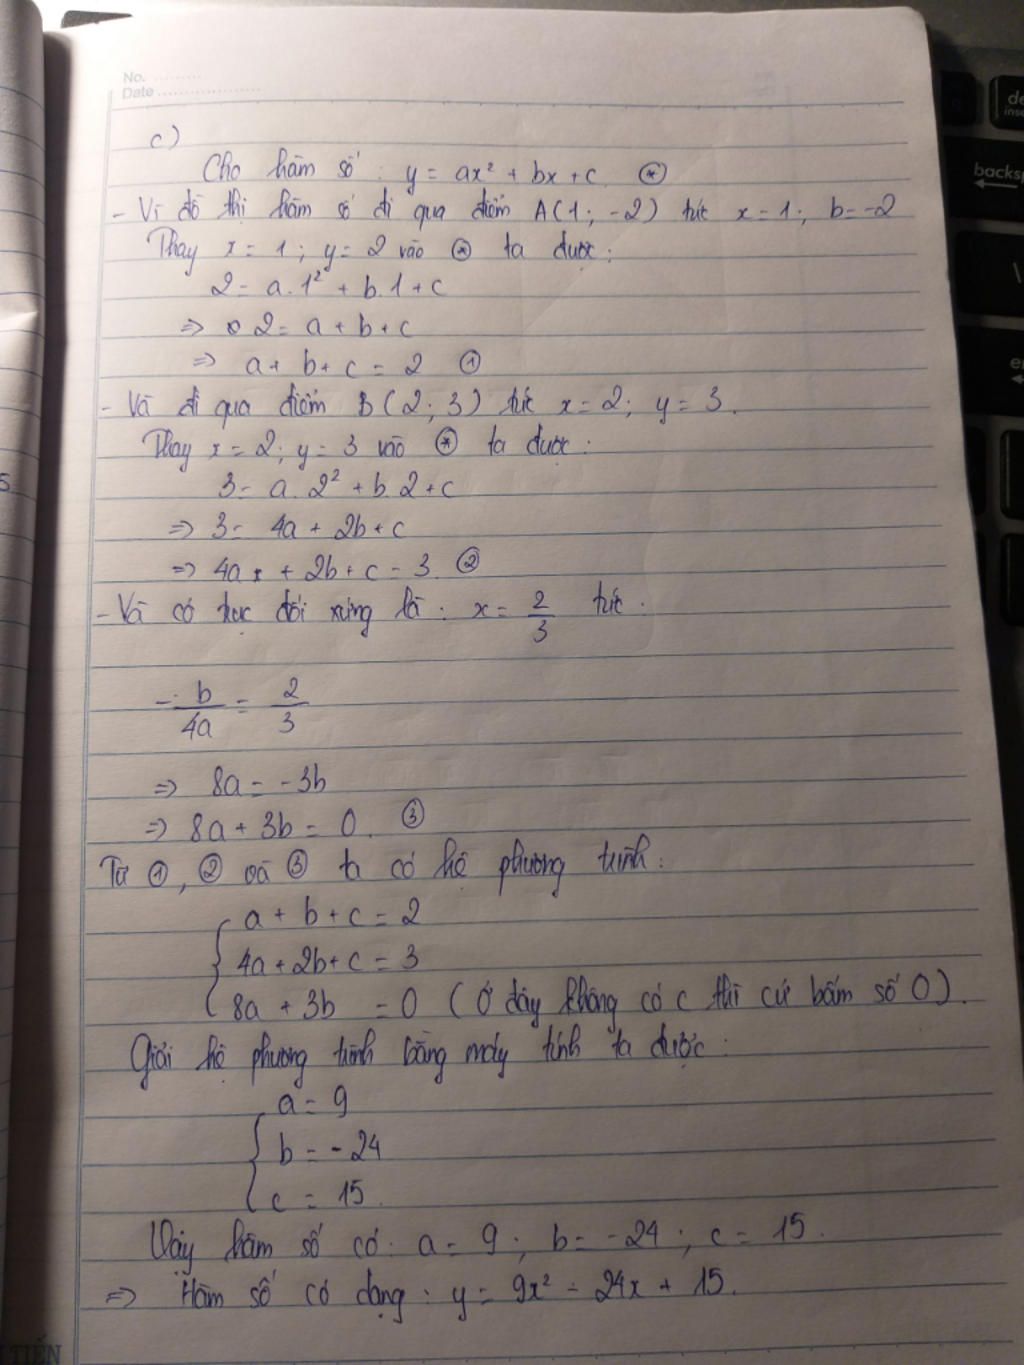 No. ..........
Date ....................
c)
Cho hàm số : y = ax² + bx + c. (*)
- Vì đồ thị hàm số đi qua điểm A(1 ; -2) tức x = 1 ; b = -2
Thay x = 1 ; y = 2 vào (*) ta được :
2 = a.1² + b.1 + c
=> 2 = a + b + c
=> a + b + c = 2 ①
- Và đi qua điểm B(2 ; 3) tức x = 2 ; y = 3.
Thay x = 2 ; y = 3 vào (*) ta được :
3 = a.2² + b.2 + c
=> 3 = 4a + 2b + c
=> 4a + 2b + c = 3. ②
- Và có trục đối xứng là : x = 2/3 tức :
-b/4a = 2/3
=> 8a = -3b
=> 8a + 3b = 0. ③
Từ ①, ② và ③ ta có hệ phương trình :
{ a + b + c = 2
4a + 2b + c = 3
8a + 3b = 0 (Ở đây không có c thì cứ bấm số 0).
Giải hệ phương trình bằng máy tính ta được :
{ a = 9
b = -24
c = 15.
Vậy hàm số có : a = 9 ; b = -24 ; c = 15.
=> Hàm số có dạng : y = 9x² - 24x + 15.
TIẾN
de
inse
backsp
5